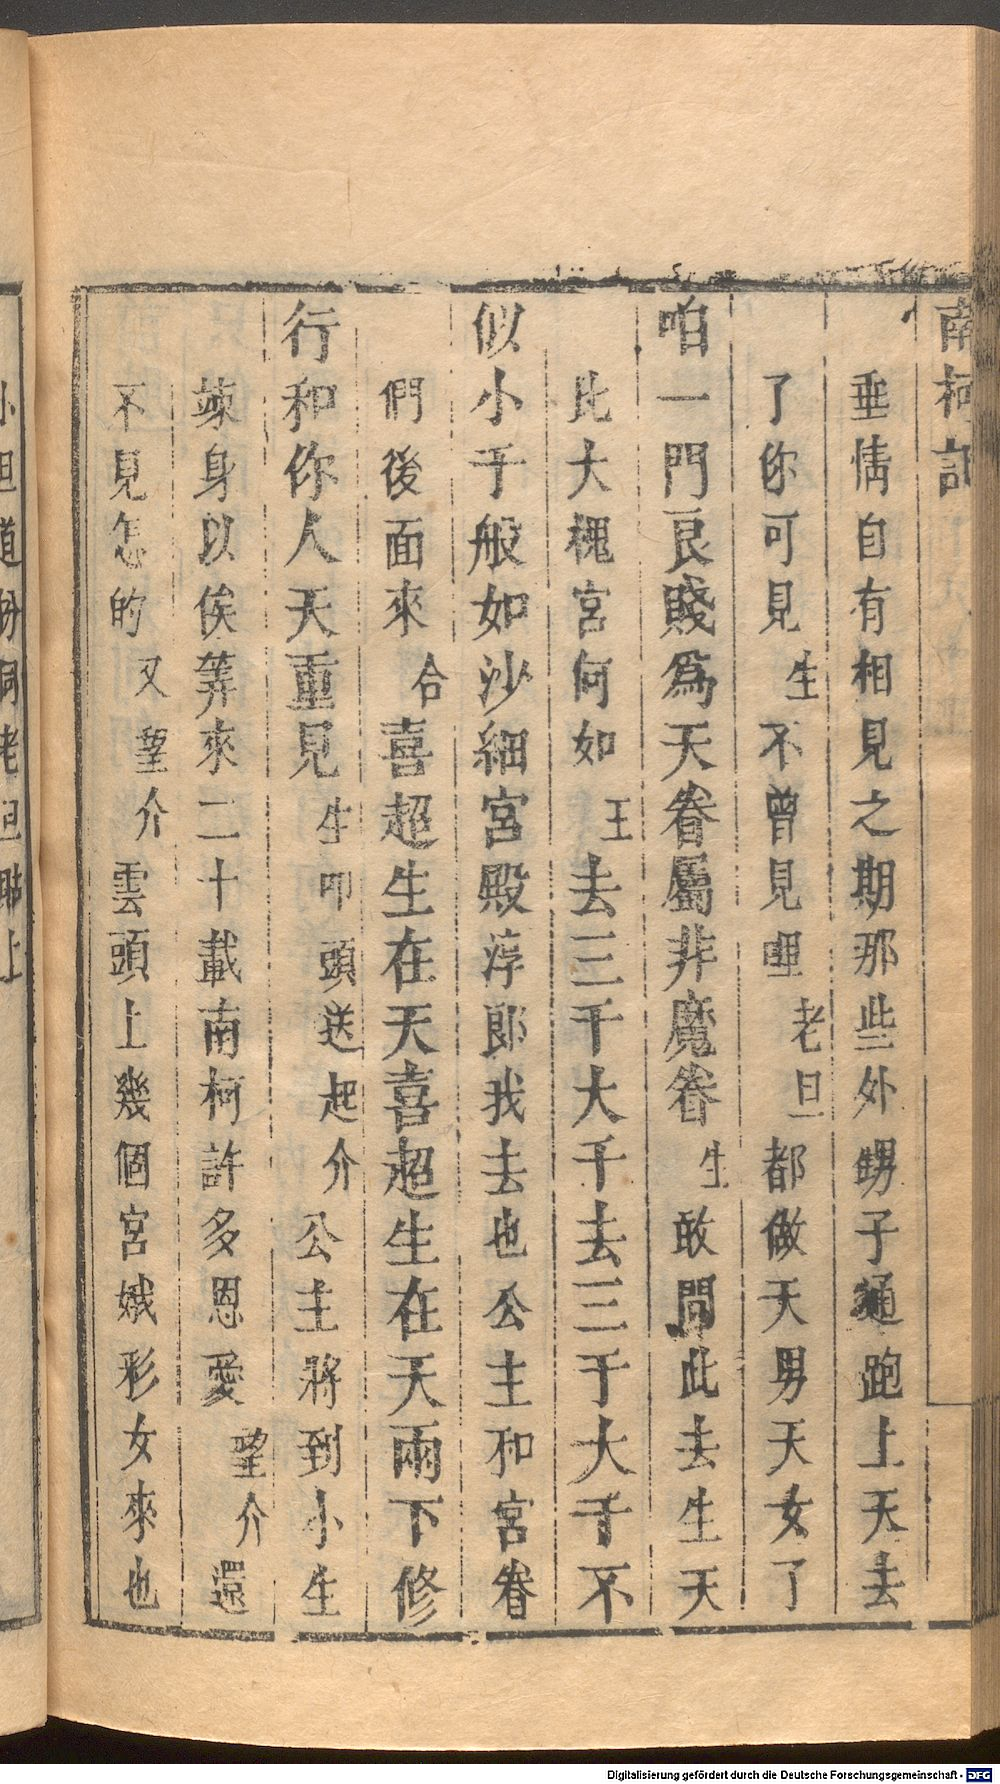 南柯記
垂情自有相見之期那些外甥子通跑上天去
了你可見生不曾見哩老旦都做天男天女了
咱一門良賤為天眷屬非魔眷生敢問此去生天
比大槐宮何如王去三千大千去三千大千不
似小千般如沙細宮殿淳郎我去也公主和宮眷
們後面來合喜超生在天喜超生在天兩下修
行和你人天重見生叩頭送起介公主將到小生
竦身以俟筭來二十載南柯許多恩愛望介還
不見怎的又望介雲頭上幾個宮娥彩女來也
小旦道扮同老旦貼上
Digitalisierung gefördert durch die Deutsche Forschungsgemeinschaft - DFG